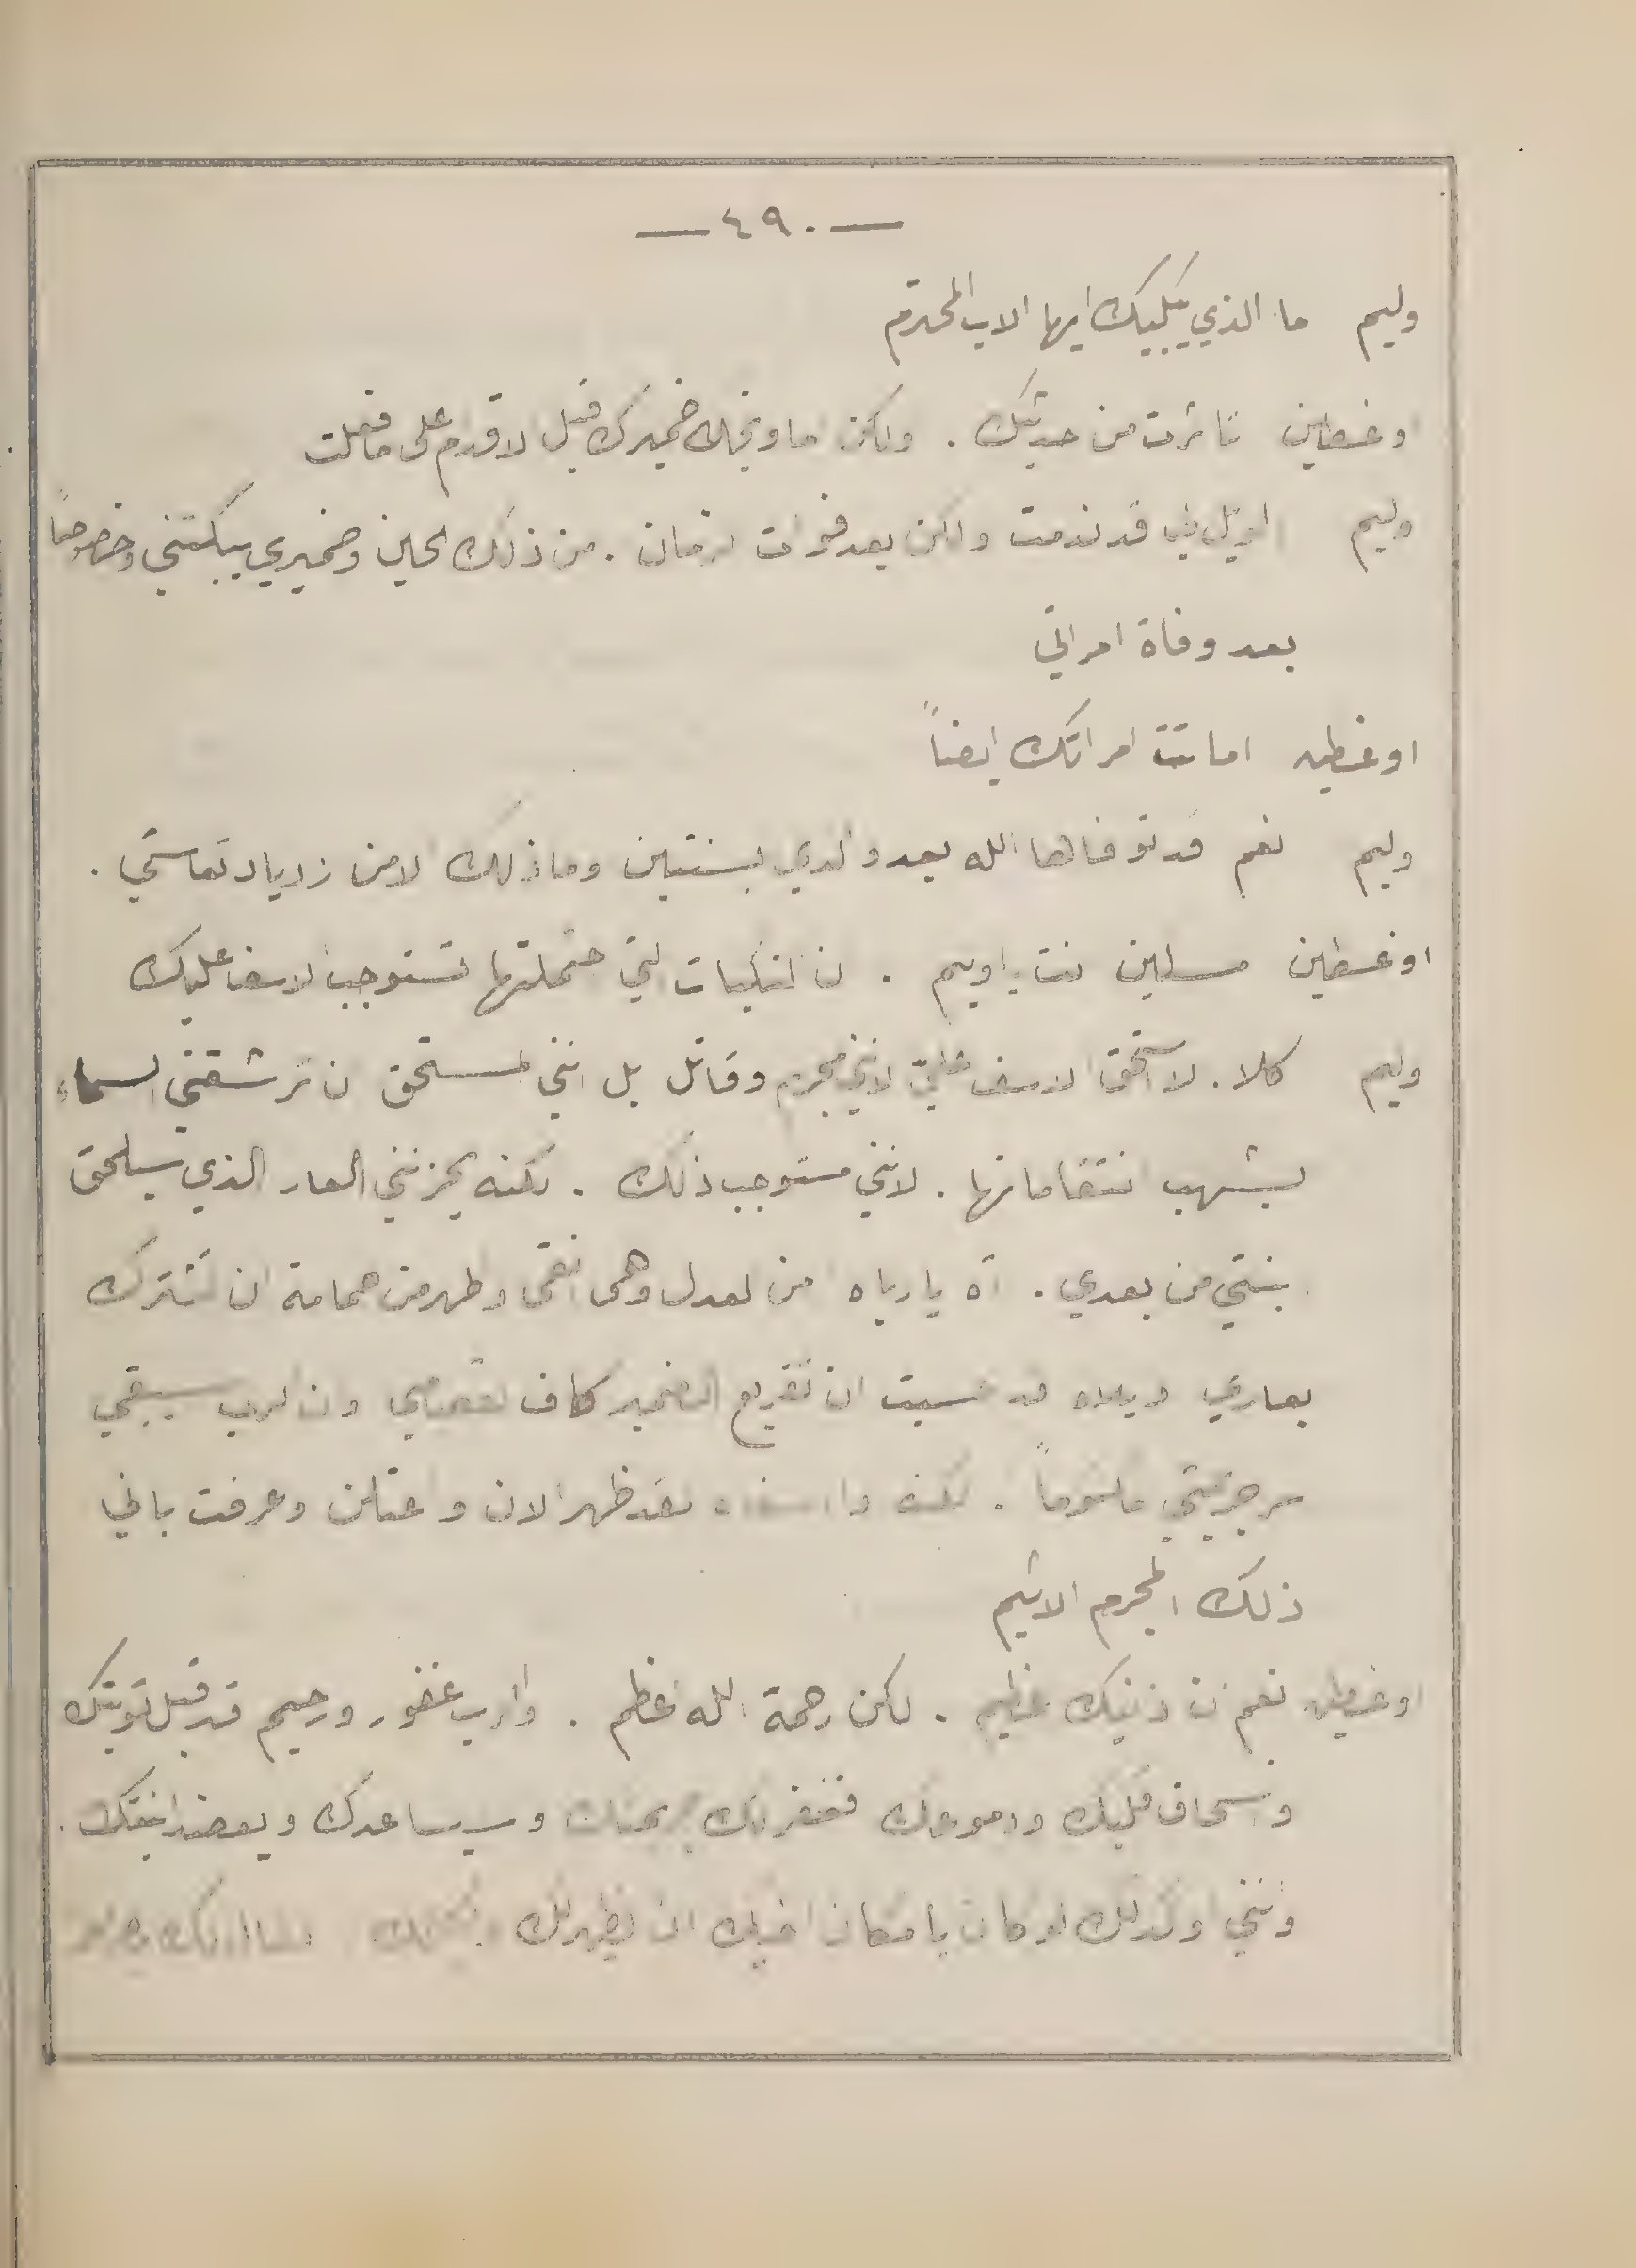 — ٤٩٠ —
وليم ما الذي يبكيك ايها الاب المحترم
اوغسطين تاثرت من حديثك . ولكن ما وبخك ضميرك قبل الاقدام على ما فعلت
وليم اويل لي قد ندمت ولكن بعد فوات الزمان . من ذلك الحين وضميري يبكتني وخصوصاً
بعد وفاة امراتي
اوغسطين اماتت امراتك ايضاً
وليم نعم قد توفاها الله بعد والدي بسنتين وما ذلك الا من ازدياد تعاستي .
اوغسطين مسكين انت يا وليم . ان النكبات التي احتملتها تستوجب الاسف عليك
وليم كلا . لا استحق الاسف عليّ لانني مجرم وقاتل بل انني لمستحق ان ترشقني السماء
بشهب انتقاماتها . لانني مستوجب ذلك . لكنه يحزنني العار الذي سيلحق
ابنتي من بعدي . آه يا رباه امن العدل وهي انقى واطهر من حمامة ان تشترك
بعاري ويلاه قد حسبت ان تقريع الضمير كاف لقصاصي وان الرب سيبقي
سر جريمتي مكتوماً . لكنه لقد ظهر الان واعتلن وعرفت باني
ذلك المجرم الاثيم
اوغسطين نعم ان ذنبك عظيم . لكن رحمة الله اعظم . والرب غفور ورحيم قد قبل توبتك
وانسحاق قلبك ودموعك فغفر لك وسيساعدك ويعضد ابنتك .
وانني اؤكد لك لو كان بامكان ابيك ان يظهر لك